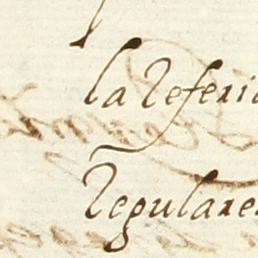 la Referid
Regulares